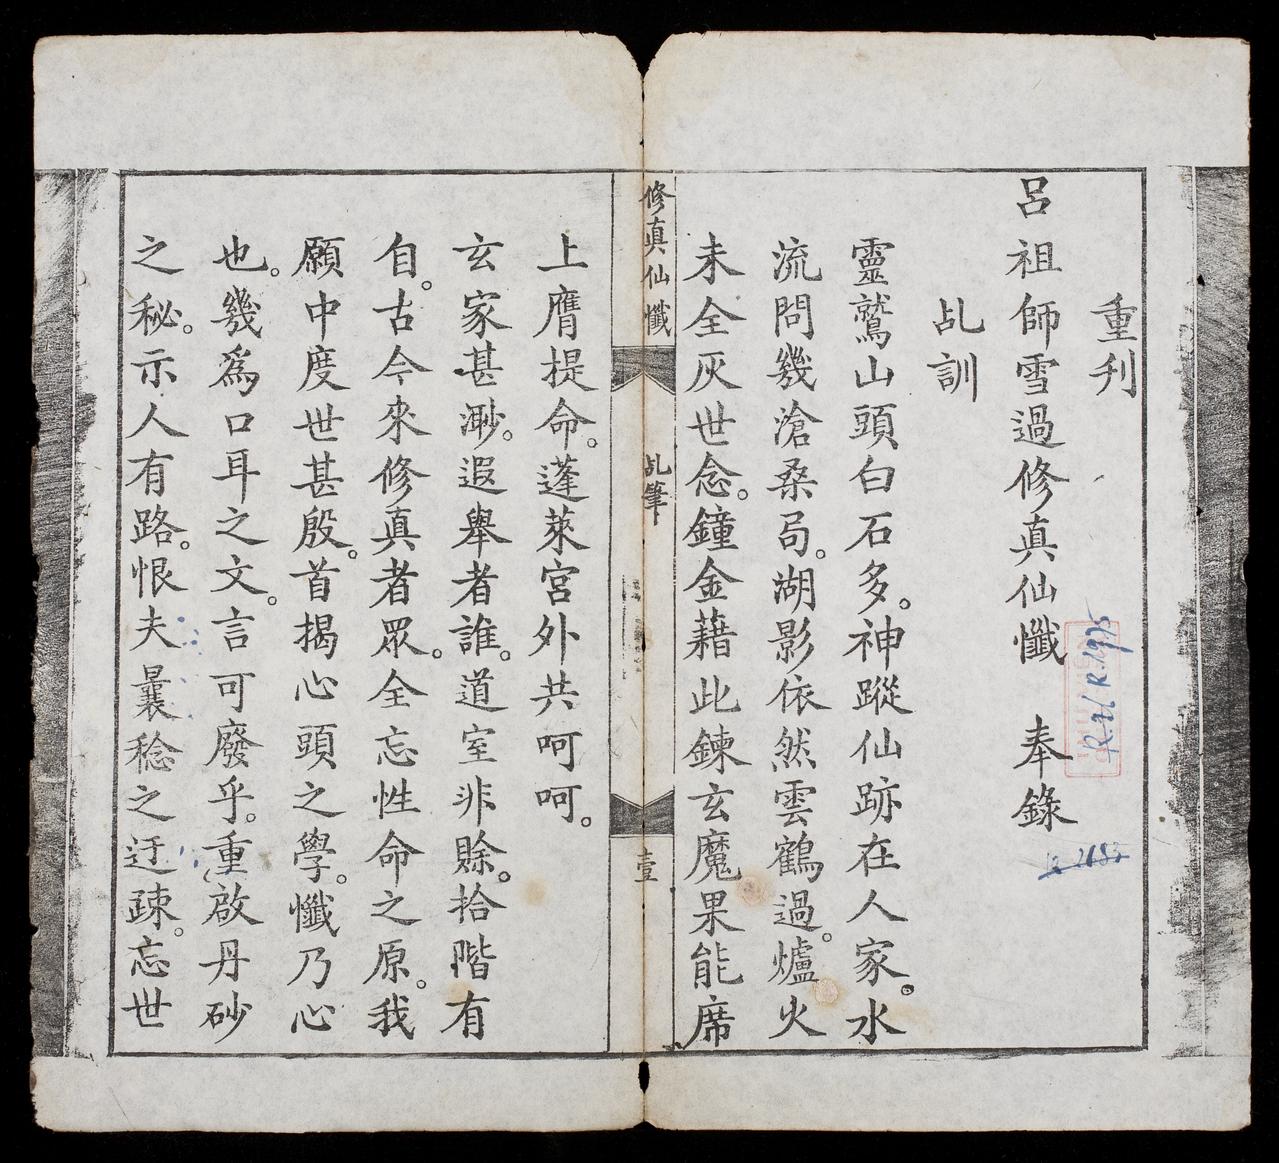 重刊
呂祖師雪過修真仙懺　奉錄
乩訓
靈鷲山頭白石多。神蹤仙跡在人家。水
流問幾滄桑局。湖影依然雲鶴過。爐火
未全灰世念。鐘金藉此鍊玄魔果能席
修真仙懺　乩筆　壹
上膺提命。蓬萊宮外共呵呵。
玄家甚渺。遐舉者誰。道室非賒。拾階有
自。古今來修真者眾。全忘性命之原。我
願中度世甚殷。首揭心頭之學。懺乃心
也。幾為口耳之文。言可廢乎。重啟丹砂
之秘。示人有路。恨夫曩稔之迂疎。忘世